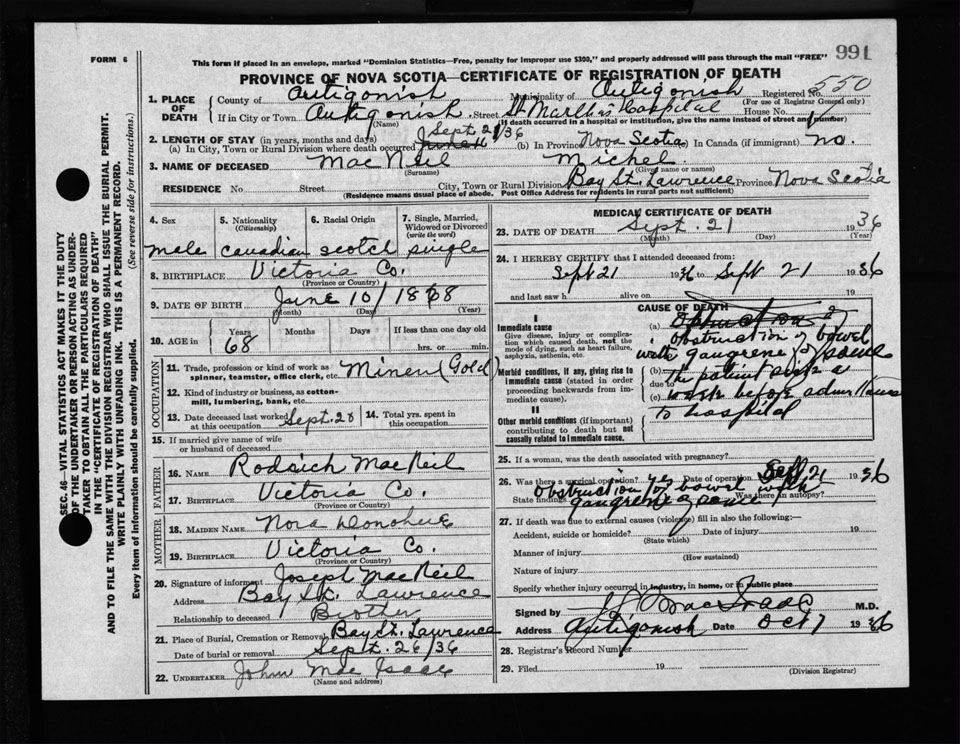 991
FORM 6
This form if placed in an envelope, marked "Dominion Statistics—Free, penalty for improper use $300," and properly addressed will pass through the mail "FREE"
PROVINCE OF NOVA SCOTIA—CERTIFICATE OF REGISTRATION OF DEATH
Registered No. 550
(For use of Registrar General only)
1. PLACE OF DEATH
County of Antigonish Municipality of Antigonish
If in City or Town Antigonish Street St Martha's Hospital House No.
(Name) (If death occurred in a hospital or institution, give the name instead of street and number)
2. LENGTH OF STAY (in years, months and days)
(a) In City, Town or Rural Division where death occurred Sept. 21/36 (b) In Province Nova Scotia In Canada (if immigrant) no.
3. NAME OF DECEASED MacNeil Michel
(Surname) (Given name or names)
RESIDENCE No Street City, Town or Rural Division Bay St. Lawrence Province Nova Scotia
(Residence means usual place of abode. Post Office Address for residents in rural parts not sufficient)
4. Sex
male
5. Nationality (Citizenship)
canadian
6. Racial Origin
scotch
7. Single, Married, Widowed or Divorced (write the word)
single
8. BIRTHPLACE Victoria Co.
(Province or Country)
9. DATE OF BIRTH June 10/1868
(Month) (Day) (Year)
10. AGE in
Years Months Days If less than one day old
68 hrs. or min.
OCCUPATION
11. Trade, profession or kind of work as spinner, teamster, office clerk, etc. Miner (Gold)
12. Kind of industry or business, as cotton-mill, lumbering, bank, etc.
13. Date deceased last worked at this occupation Sept. 20
14. Total yrs. spent in this occupation
15. If married give name of wife or husband of deceased
FATHER
16. NAME Rodrich MacNeil
17. BIRTHPLACE Victoria Co.
(Province or Country)
MOTHER
18. MAIDEN NAME Nora Donohue
19. BIRTHPLACE Victoria Co.
(Province or Country)
20. Signature of informant Joseph MacNeil
Address Bay St. Lawrence
Relationship to deceased Brother
21. Place of Burial, Cremation or Removal Bay St. Lawrence
Date of burial or removal Sept. 26/36
22. UNDERTAKER John MacIsaac
(Name and address)
MEDICAL CERTIFICATE OF DEATH
23. DATE OF DEATH Sept. 21 1936
(Month) (Day) (Year)
24. I HEREBY CERTIFY that I attended deceased from:
Sept 21 1936 to Sept 21 1936
and last saw h alive on 19
CAUSE OF DEATH
I
Immediate cause
Give disease, injury or complication which caused death, not the mode of dying, such as heart failure, asphyxia, asthenia, etc.
Morbid conditions, if any, giving rise to immediate cause (stated in order proceeding backwards from immediate cause).
II
Other morbid conditions (if important) contributing to death but not causally related to immediate cause.
(a) Obstruction of
obstruction of bowel
with gangrene of same
(b) The patient sick a
due to
(c) week before admittance
to hospital
25. If a woman, was the death associated with pregnancy?
26. Was there a surgical operation? yes Date of operation Sept. 21 1936
State findings obstruction of bowel with gangrene of same Was there an autopsy?
27. If death was due to external causes (violence) fill in also the following:—
Accident, suicide or homicide? Date of injury 19
(State which)
Manner of injury
(How sustained)
Nature of injury
Specify whether injury occurred in industry, in home, or in public place
Signed by M.D.
Address Antigonish Date Oct 7 1936
28. Registrar's Record Number
29. Filed 19
(Division Registrar)
SEC. 46—VITAL STATISTICS ACT MAKES IT THE DUTY
OF THE UNDERTAKER OR PERSON ACTING AS UNDER-
TAKER TO OBTAIN ALL THE PARTICULARS REQUIRED
IN THE "CERTIFICATE OF REGISTRATION OF DEATH"
AND TO FILE THE SAME WITH THE DIVISION REGISTRAR WHO SHALL ISSUE THE BURIAL PERMIT.
WRITE PLAINLY WITH UNFADING INK. THIS IS A PERMANENT RECORD.
Every item of information should be carefully supplied. (See reverse side for instructions.)